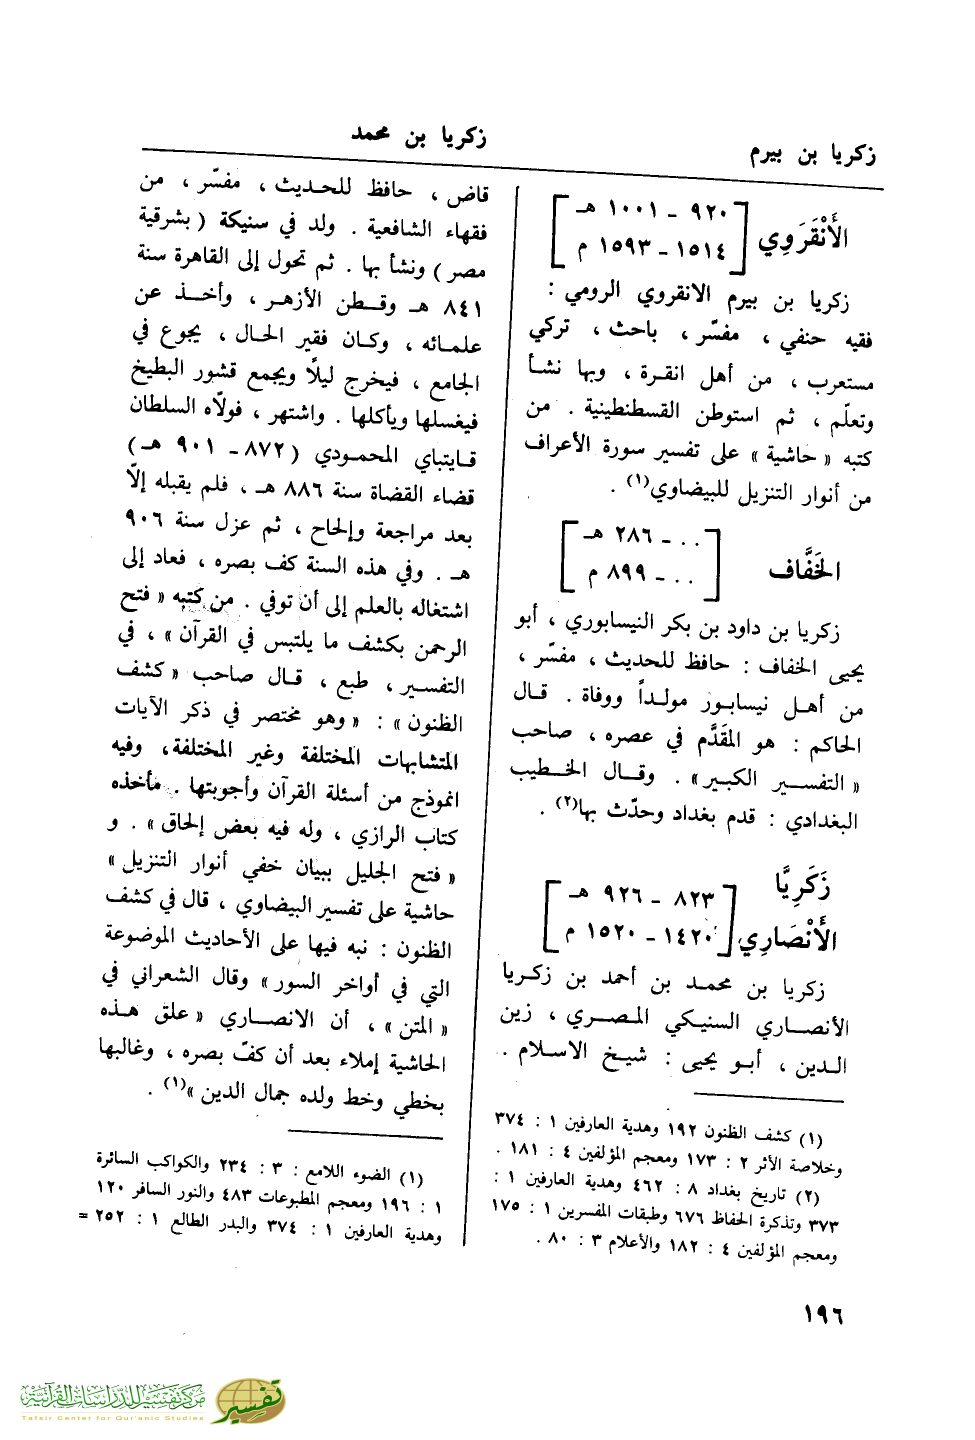 زكريا بن بيرم
زكريا بن محمد
الأَنْقَرَوِي
[ ٩٢٠ - ١٠٠١ هـ
١٥١٤ - ١٥٩٣ م ]
زكريا بن بيرم الانقروي الرومي :
فقيه حنفي ، مفسّر ، باحث ، تركي
مستعرب ، من أهل انقرة ، وبها نشأ
وتعلّم ، ثم استوطن القسطنطينية . من
كتبه « حاشية » على تفسير سورة الأعراف
من أنوار التنزيل للبيضاوي(١) .
الخَفَّاف
[ .. - ٢٨٦ هـ
.. - ٨٩٩ م ]
زكريا بن داود بن بكر النيسابوري ، أبو
يحيى الخفاف : حافظ للحديث ، مفسّر ،
من أهل نيسابور مولداً ووفاة . قال
الحاكم : هو المقَدَّم في عصره ، صاحب
« التفسير الكبير » . وقال الخطيب
البغدادي : قدم بغداد وحدّث بها(٢) .
زَكَرِيَّا
الأَنْصَارِي
[ ٨٢٣ - ٩٢٦ هـ
١٤٢٠ - ١٥٢٠ م ]
زكريا بن محمد بن أحمد بن زكريا
الأنصاري السنيكي المصري ، زين
الدين ، أبو يحيى : شيخ الاسلام .
(١) كشف الظنون ١٩٢ وهدية العارفين ١ : ٣٧٤
وخلاصة الأثر ٢ : ١٧٣ ومعجم المؤلفين ٤ : ١٨١ .
(٢) تاريخ بغداد ٨ : ٤٦٢ وهدية العارفين ١ :
٣٧٣ وتذكرة الحفاظ ٦٧٦ وطبقات المفسرين ١ : ١٧٥
ومعجم المؤلفين ٤ : ١٨٢ والأعلام ٣ : ٨٠ .
قاض ، حافظ للحديث ، مفسّر ، من
فقهاء الشافعية . ولد في سنيكة ( بشرقية
مصر ) ونشأ بها . ثم تحول إلى القاهرة سنة
٨٤١ هـ وقطن الأزهر ، وأخذ عن
علمائه ، وكان فقير الحال ، يجوع في
الجامع ، فيخرج ليلًا ويجمع قشور البطيخ
فيغسلها ويأكلها . واشتهر ، فولاه السلطان
قايتباي المحمودي ( ٨٧٢ - ٩٠١ هـ )
قضاء القضاة سنة ٨٨٦ هـ ، فلم يقبله إلاّ
بعد مراجعة وإلحاح ، ثم عزل سنة ٩٠٦
هـ . وفي هذه السنة كف بصره ، فعاد إلى
اشتغاله بالعلم إلى أن توفي . من كتبه « فتح
الرحمن بكشف ما يلتبس في القرآن » ، في
التفسير ، طبع ، قال صاحب « كشف
الظنون » : « وهو مختصر في ذكر الآيات
المتشابهات المختلفة وغير المختلفة ، وفيه
انموذج من أسئلة القرآن وأجوبتها . مأخذه
كتاب الرازي ، وله فيه بعض إلحاق » . و
« فتح الجليل ببيان خفي أنوار التنزيل »
حاشية على تفسير البيضاوي ، قال في كشف
الظنون : نبه فيها على الأحاديث الموضوعة
التي في أواخر السور » وقال الشعراني في
« المتن » ، أن الانصاري « علق هذه
الحاشية إملاء بعد أن كفّ بصره ، وغالبها
بخطي وخط ولده جمال الدين »(١) .
(١) الضوء اللامع : ٣ : ٢٣٤ والكواكب السائرة
١ : ١٩٦ ومعجم المطبوعات ٤٨٣ والنور السافر ١٢٠
وهدية العارفين ١ : ٣٧٤ والبدر الطالع ١ : ٢٥٢ =
١٩٦
مركز تفسير للدراسات القرآنية
Tafsir Center for Qur'anic Studies
تفسير